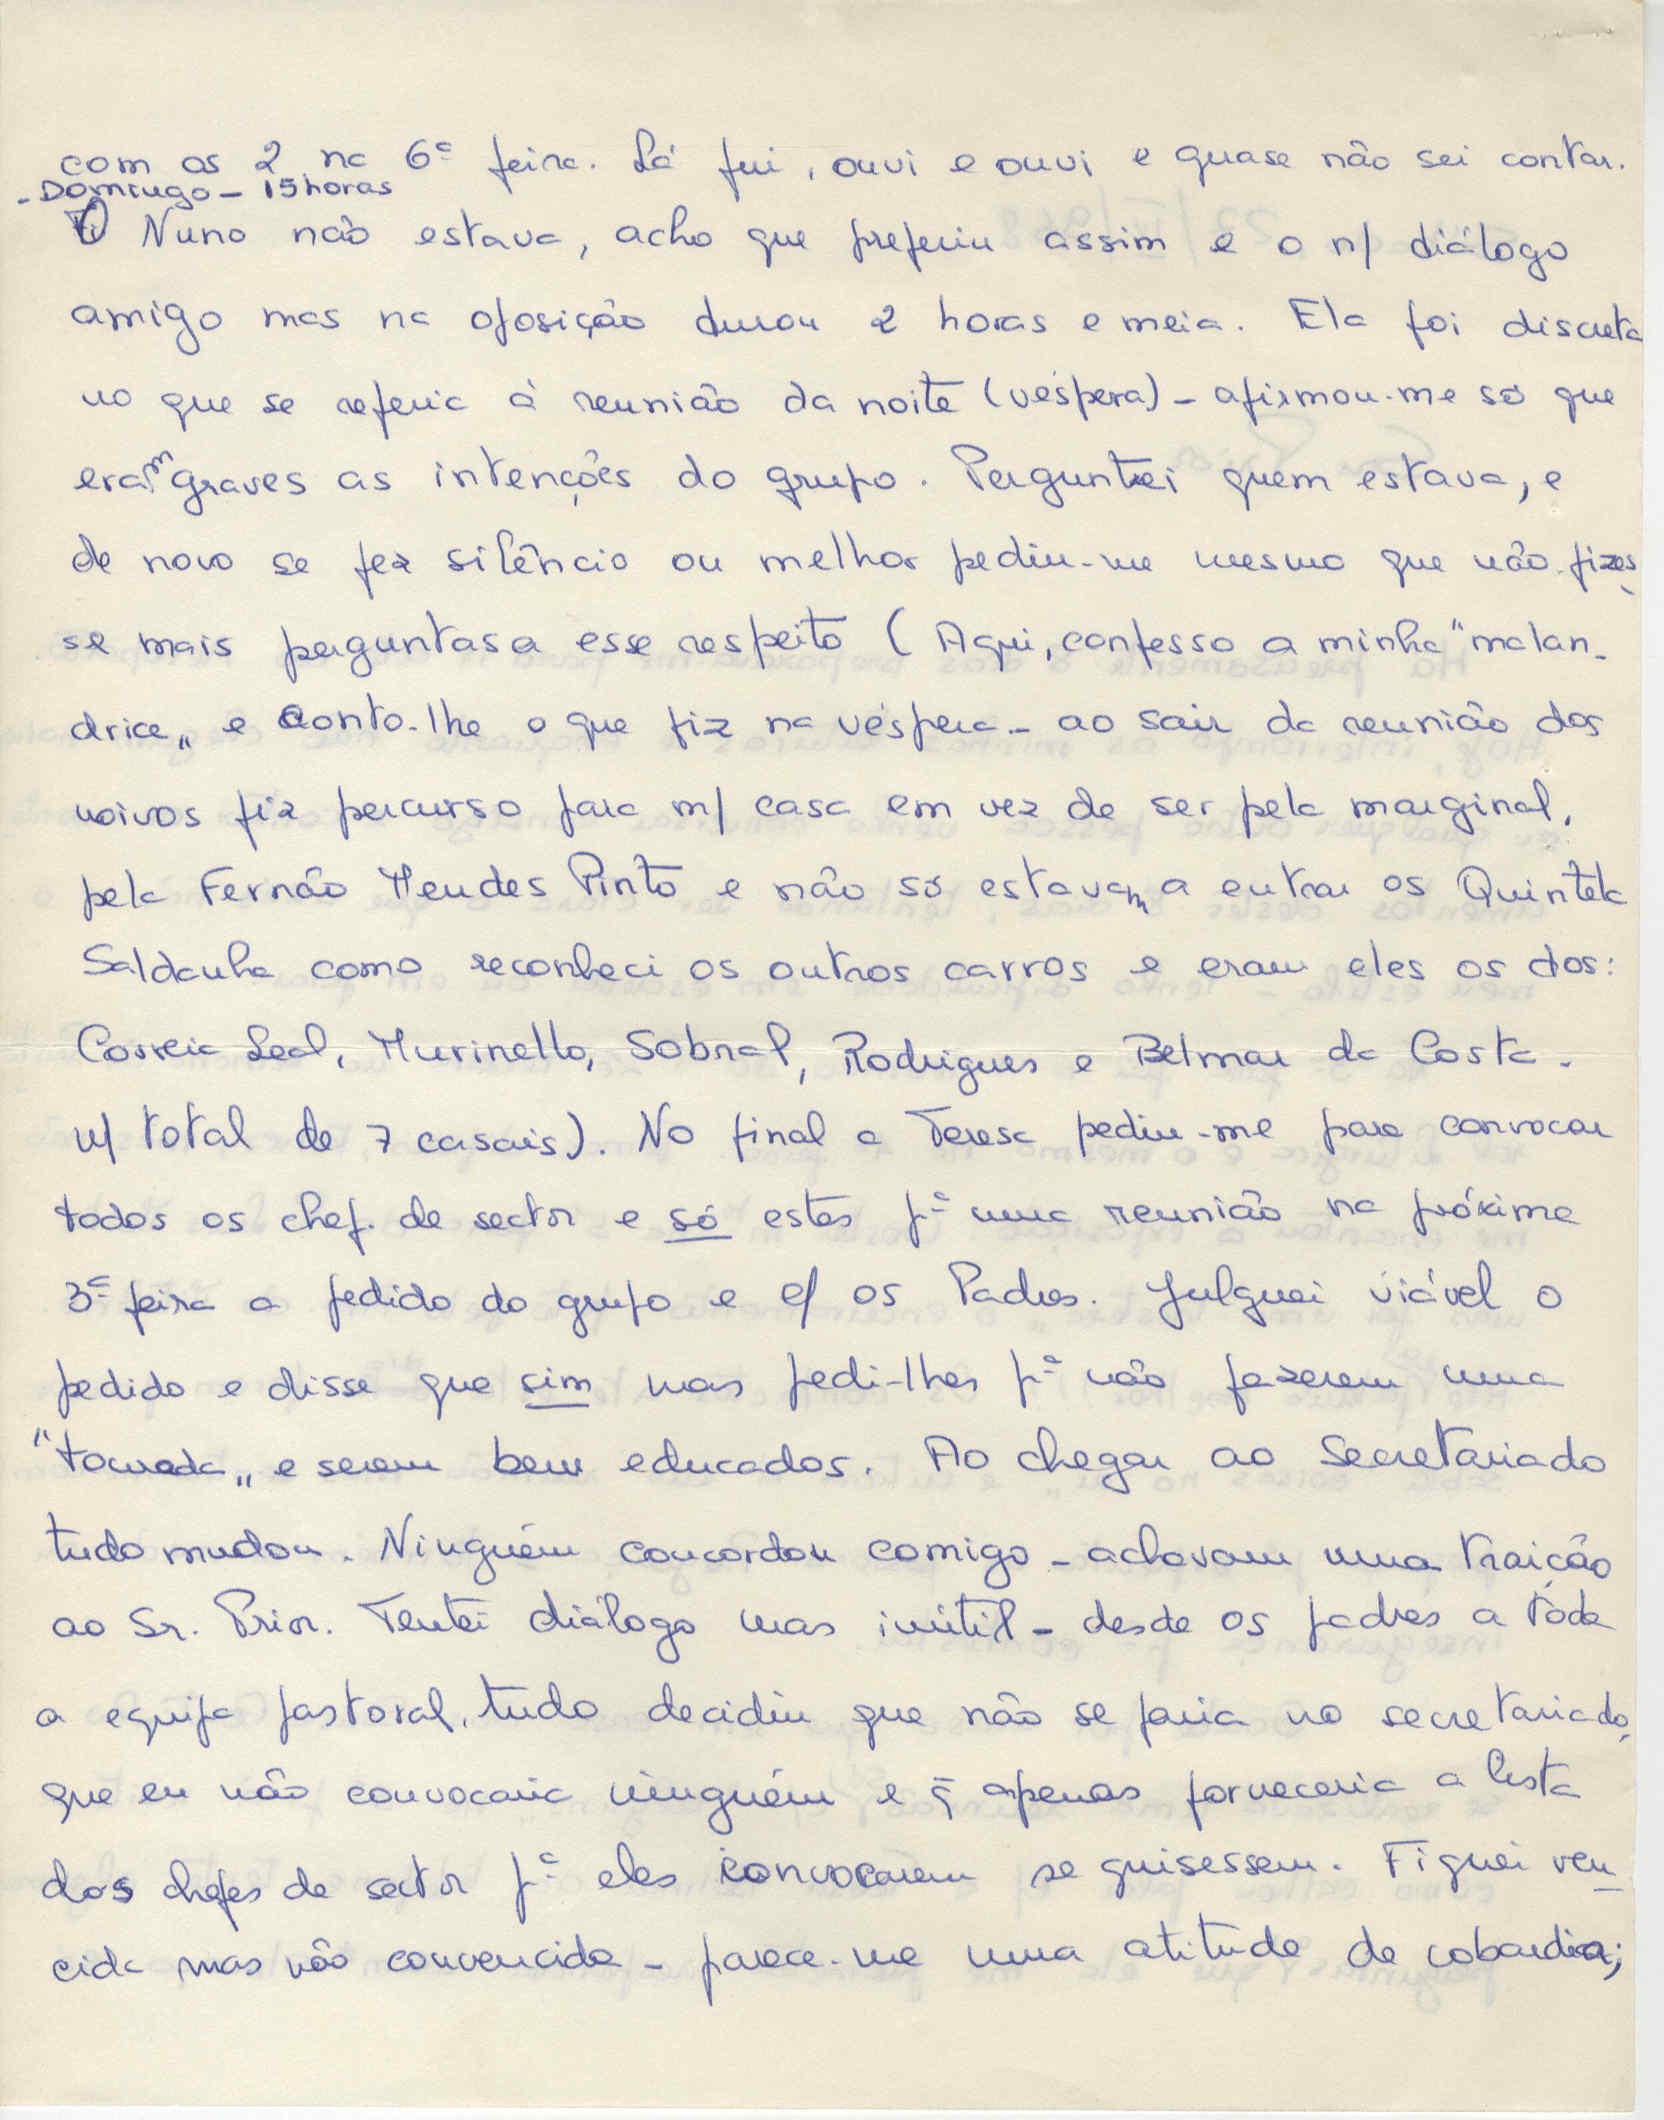 com os 2 na 6ª feira. Lá fui, ouvi e ouvi e quase não sei contar.
- Domingo - 15 horas
O Nuno não estava, acho que preferiu assim e o n/ diálogo
amigo mas na oposição durou 2 horas e meia. Ela foi discreta
no que se referia à reunião da noite (véspera) - afirmou-me só que
eram graves as intenções do grupo. Perguntei quem estava, e
de novo se fez silêncio ou melhor pediu-me mesmo que não fizes
se mais perguntas a esse respeito (Aqui, confesso a minha "malan-
drice" e conto-lhe o que fiz na véspera - ao sair da reunião dos
noivos fiz percurso para m/ casa em vez de ser pela marginal,
pela Fernão Mendes Pinto e não só estavam a entrar os Quintela
Saldanha como reconheci os outros carros e eram eles os dos:
Correia Leal, Murinello, Sobral, Rodrigues e Belmar da Costa -
n/ total de 7 casais). No final a Teresa pediu-me para convocar
todos os chef. de sector e só estes pª uma reunião na próxima
3ª feira a pedido do grupo e c/ os Padres. Julguei viável o
pedido e disse que sim mas pedi-lhes pª não fazerem uma
"tourada" e serem bem educados. Ao chegar ao Secretariado
tudo mudou. Ninguém concordou comigo - achavam uma traição
ao Sr. Prior. Tentei diálogo mas inútil - desde os padres a tôda
a equipa pastoral, tudo decidiu que não se faria no secretariado,
que eu não convocaria ninguém e q̃ apenas forneceria a lista
dos chefes de sector pª eles convocarem se quisessem. Fiquei ven
cida mas não convencida - parece-me uma atitude de cobardia;